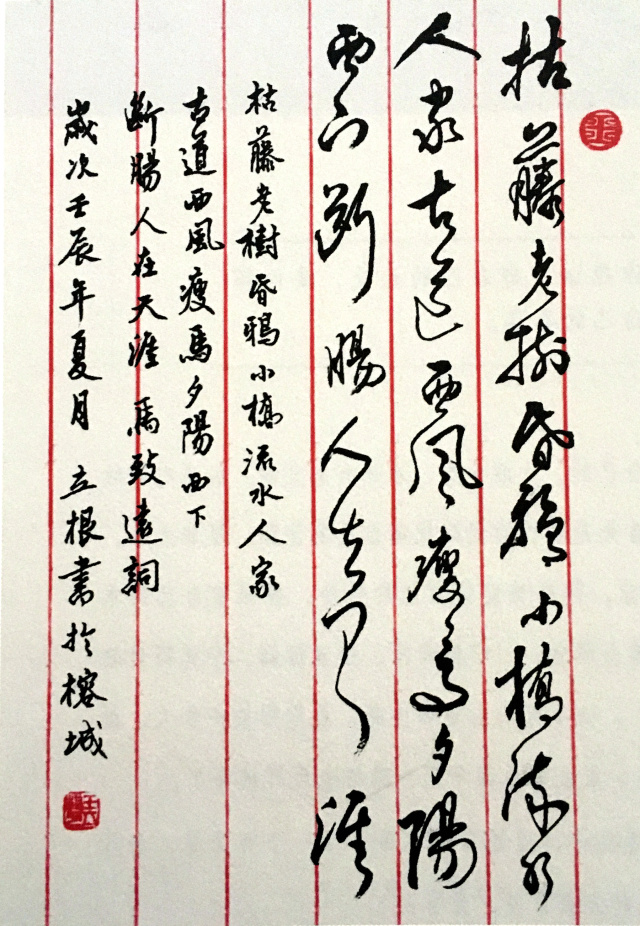 枯藤老樹昏鴉小橋流水
人家古道西風瘦馬夕陽
西下斷腸人在天涯
枯藤老樹昏鴉小橋流水人家
古道西風瘦馬夕陽西下
斷腸人在天涯 馬致遠詞
歲次壬辰年夏月 立根書於榕城